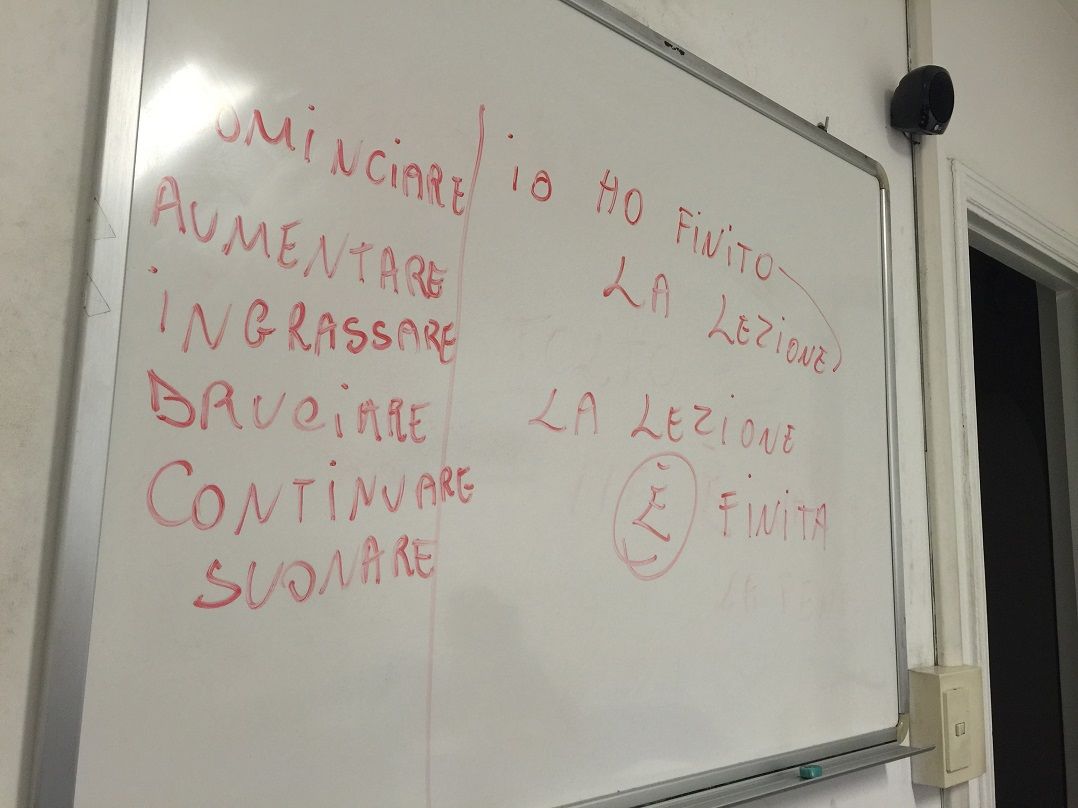 OMINCIARE
AUMENTARE
INGRASSARE
BRUCIARE
CONTINUARE
SUONARE
io HO FINITO
LA LEZIONE
LA LEZIONE
È FINITA